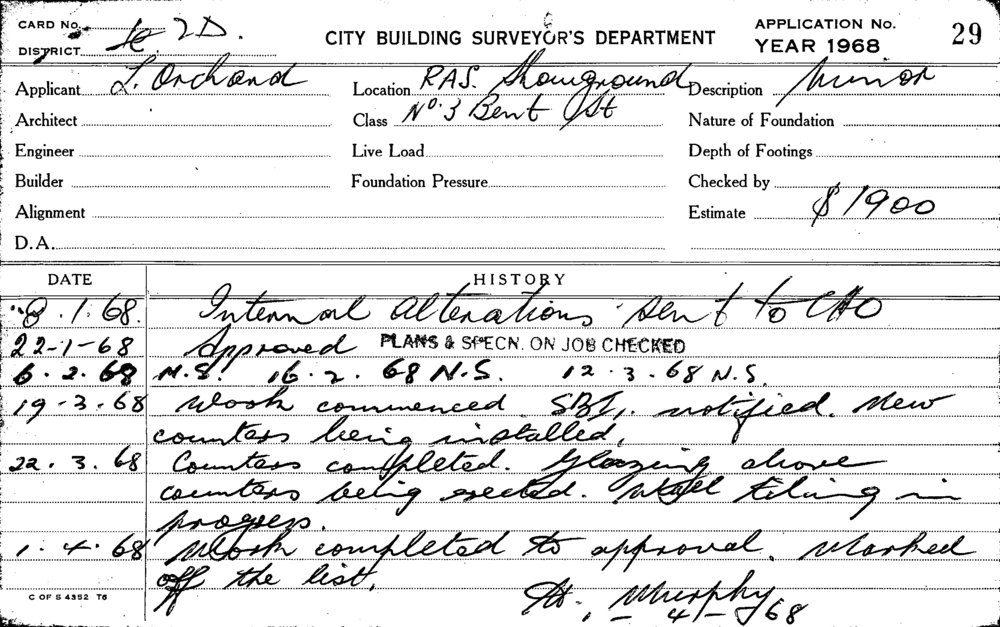 CARD No.
DISTRICT 2D.
CITY BUILDING SURVEYOR'S DEPARTMENT
APPLICATION No.
YEAR 1968
29
Applicant L. Orchard
Location RAS. Showground
Description Minor
Architect
Class No. 3 Bent St
Nature of Foundation
Engineer
Live Load
Depth of Footings
Builder
Foundation Pressure
Checked by
Alignment
Estimate $1900
D.A.
DATE HISTORY
8.1.68. Internal alterations sent to CHO
22-1-68 Approved PLANS & SPECN. ON JOB CHECKED
6.2.68 N.S. 16.2.68 N.S. 12.3.68 N.S.
19-3.68 Work commenced. SBI. notified. New
counters being installed.
22.3.68 Counters completed. Glazing above
counters being erected. Wall tiling in
progress.
1.4.68 Work completed to approval. Marked
off the list.
Murphy
1-4-68
C OF S 4352 T6